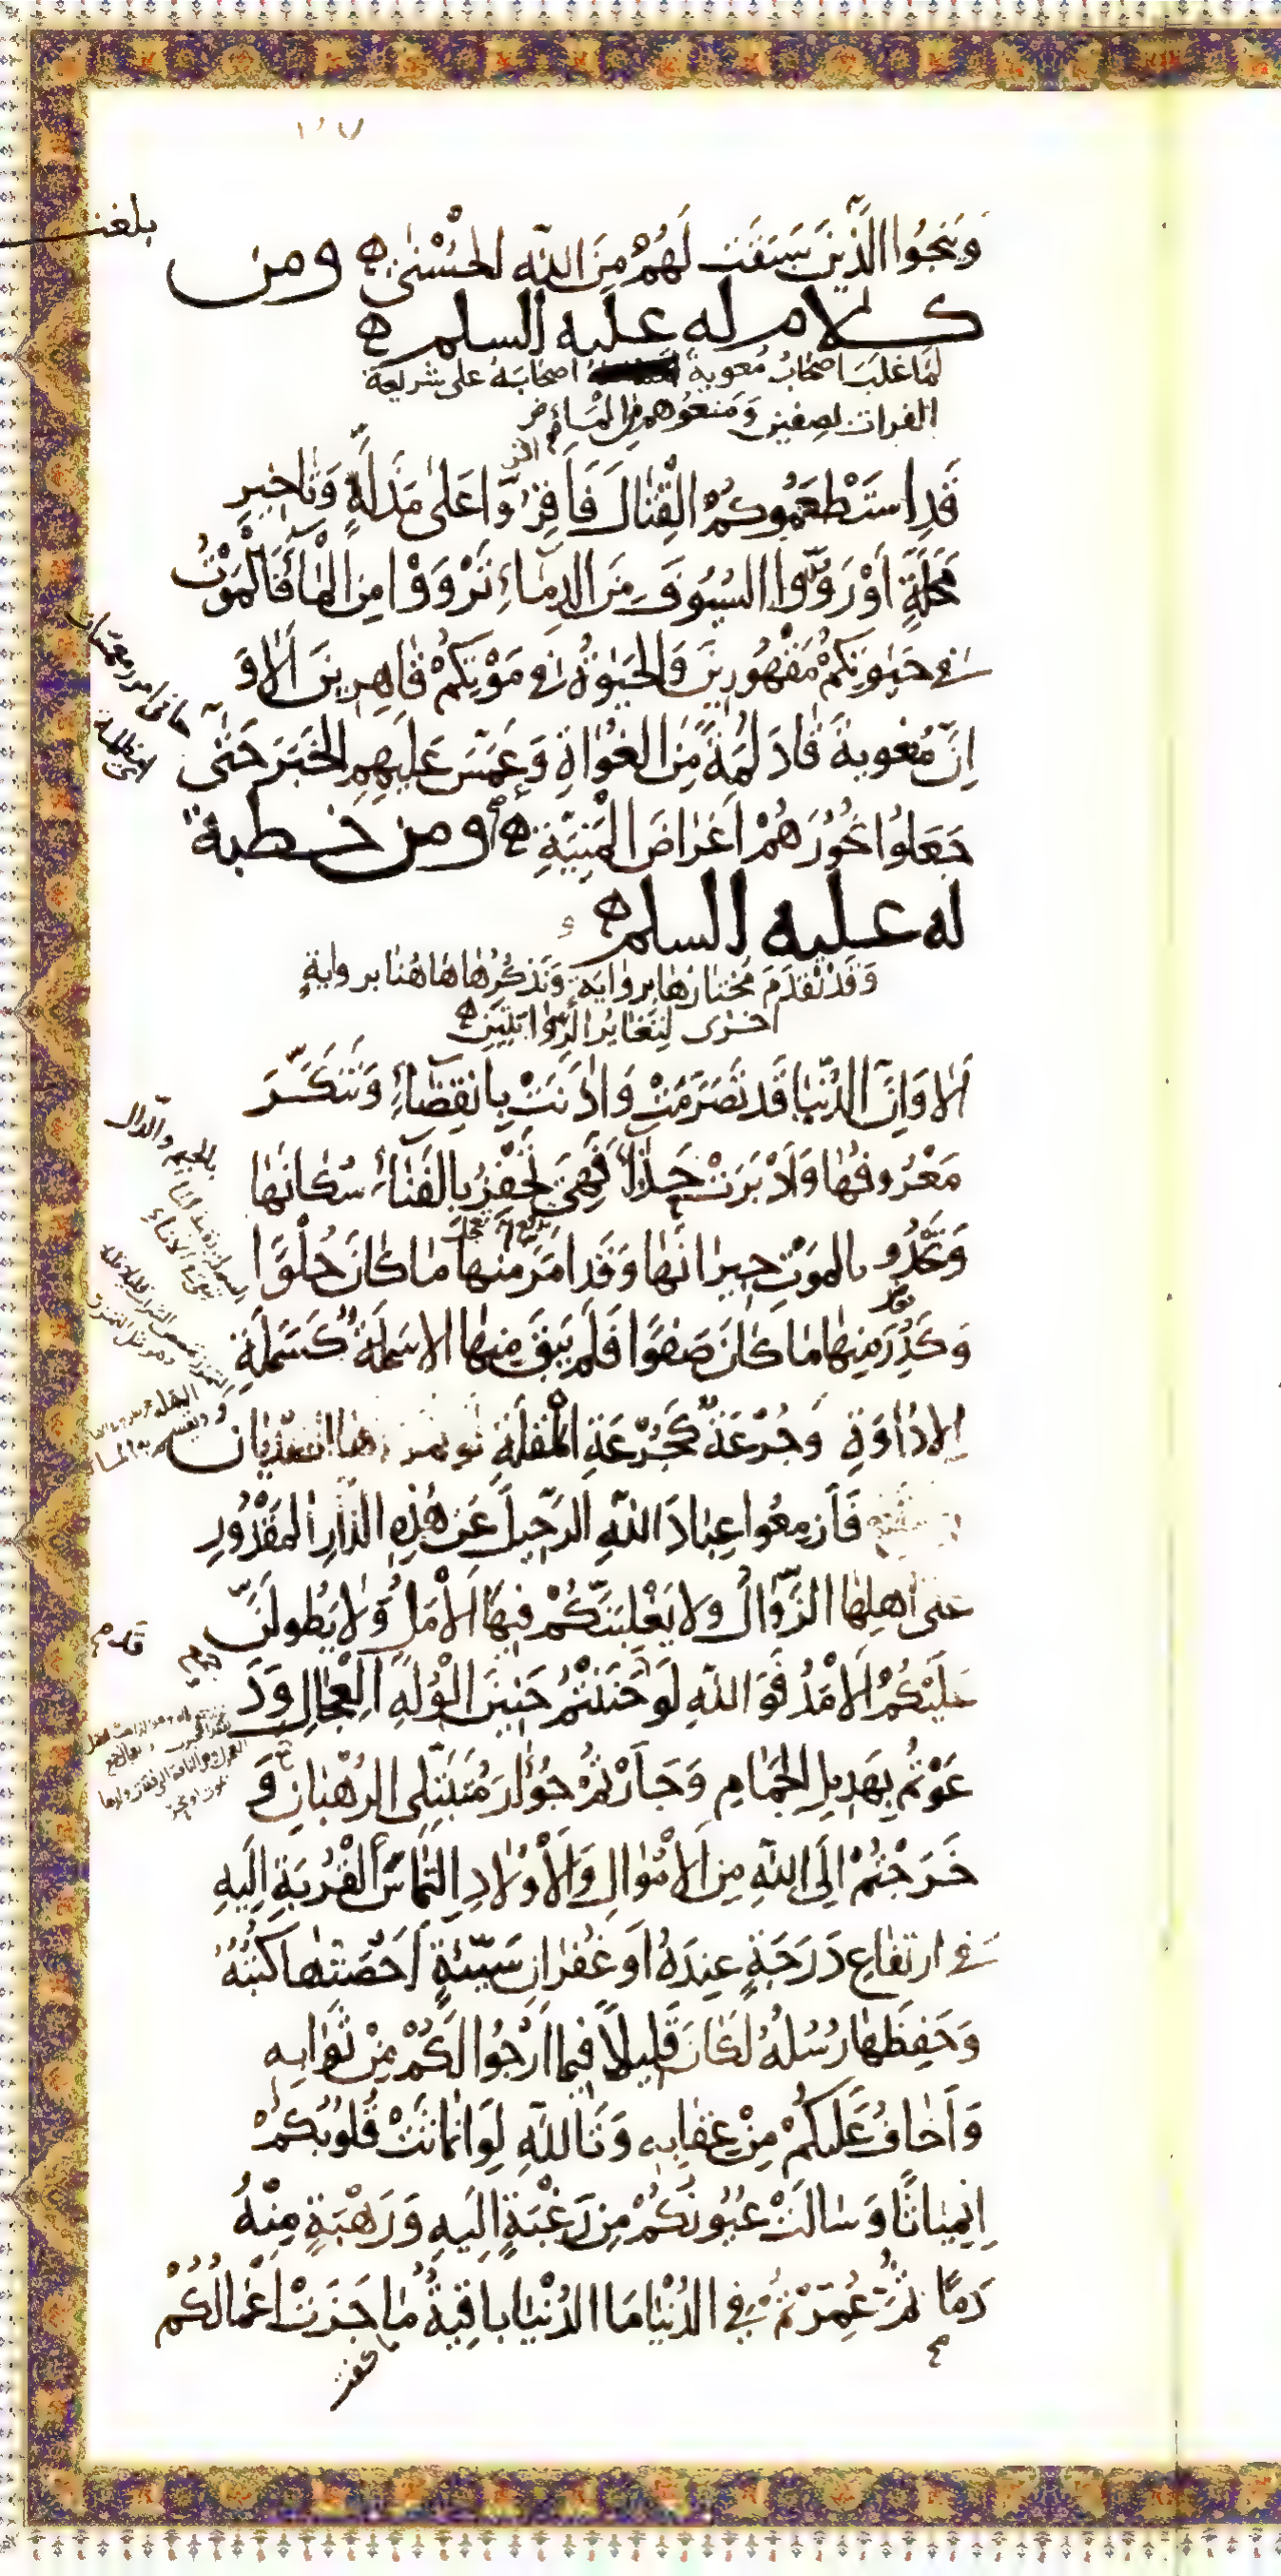 ١٠٧
بلغت
وَيَنْجُوا الَّذِينَ سَبَقَتْ لَهُمْ مِنَ اللّهِ الحُسْنى ومن
كلام له عليه السلم
لمّا غلبَ اصحابُ مُعوية اصحابَهُ على شريعة
الفرات بصفين وَمنعُوهم من المَاءِ
قَدِ اسْتَطْعَمُوكُمُ الْقِتٰالَ فَاَقِرُّوا عَلىٰ مَذَلَّةٍ وَتٰاخيرِ
مَحَلَّةٍ اَوْ رَوُّوا السُيُوفَ مِنَ الدِمٰاءِ تَرْوَوْا مِنَ الْمٰاءِ فَالْمَوْتُ
في حَيٰوتِكُمْ مَقْهُورِينَ وَالحَيٰوةُ في مَوْتِكُمْ قٰاهِرِينَ اَلاٰ وَ
اِنَّ مُعٰويةَ قٰادَ لُمَةً مِنَ الغُوٰاةِ وَعَمَّسَ عَلَيهِمِ الخَبَرَ حَتّٰى
جَعَلُوا نُحُورَهُمْ اَغرٰاضَ المَنِيَّةِ ومن خطبة
له عليه السلم
وَقَدْ تقدَمَ مُختارُهٰا بروٰايَةٍ وَنَذكُرُهٰا هٰاهُنٰا بروايةٍ
اخرٰى لِتغٰايُر الرِوٰايَتَينِ
اَلاٰ وَاِنَّ الدُنْيٰا قَد تَصَرَّمَتْ وَاٰذَنَتْ بِانْقِضٰاءٍ وَتَنَكَّرَ
مَعْرُوفُهٰا وَاَدْبَرَتْ حَذّٰاءَ فَهِيَ تَحْفِزُ بِالفَنٰاءِ سُكّٰانَهٰا
وَتَحْدُو بالموَتِ جيرٰانَهٰا وَقَد اَمَرَّ مِنهٰا مٰا كٰانَ حُلْوًا
وَكَدِرَ مِنهٰا مٰا كٰانَ صَفوًا فَلَم يَبقَ مِنهٰا الا سَمَلَةٌ كَسَمَلَةِ
الاِدٰاوَةِ وَجُرْعَةٌ كَجُرْعَةِ الْمَقلَةِ لو تمززها الصديان
فَاَزمِعُوا عِبٰادَ اللّهِ الرَحِيلَ عَن هٰذِهِ الدّٰارِ المَقْدُورِ
على اَهلِهٰا الزَّوٰالُ ولا يَغْلِبَنَّكُمْ فِيهَا الاَْمَلُ وَلاٰ يَطُولَنَّ
عَلَيْكُمُ الاَمَدُ فَوَ اللّهِ لَوْ حَنَنْتُمْ حَنِينَ الوُلَّهِ الْعِجٰالِ وَدَ
عَوْتُم بِهَدِيلِ الحَمٰامِ وَجَاَرْتُمْ جُؤٰارَ مُتَبَتِّلِي الرُهْبٰانِ وَ
خَرَجْتُمْ اِلَى اللّهِ مِنَ الاَمْوٰالِ وَالاَوْلاٰدِ اِلتِمٰاسَ القُرْبَةِ اِلَيهِ
في ارتفٰاعِ دَرَجَةٍ عِندَهُ اَو غُفرٰانِ سَيِّئَةٍ اَحْصَتهٰا كُتُبُهُ
وَحَفِظَهٰا رُسُلُهُ لَكٰانَ قَلِيلاً فِيمٰا اَرْجُوا لَكُمْ مِنْ ثَوٰابِهِ
وَاَخٰافُ عَلَيكُمْ مِنْ عِقٰابِهِ وَتَاللّهِ لَوِ انمٰاثَتْ قُلُوبُكُمْ
اِنْمِيٰاثًا وَسٰالَتْ عُيُونُكُمْ مِن رَغْبَةٍ اِلَيهِ وَرَهْبَةٍ مِنْهُ
دَمًا ثُمَّ عُمِّرْتُمْ فِي الدُنْيٰا مَا الدُنْيٰا باقِيةٌ مٰا جَزَتْ اَعْمٰالُكُمْ
بالجيم والدال